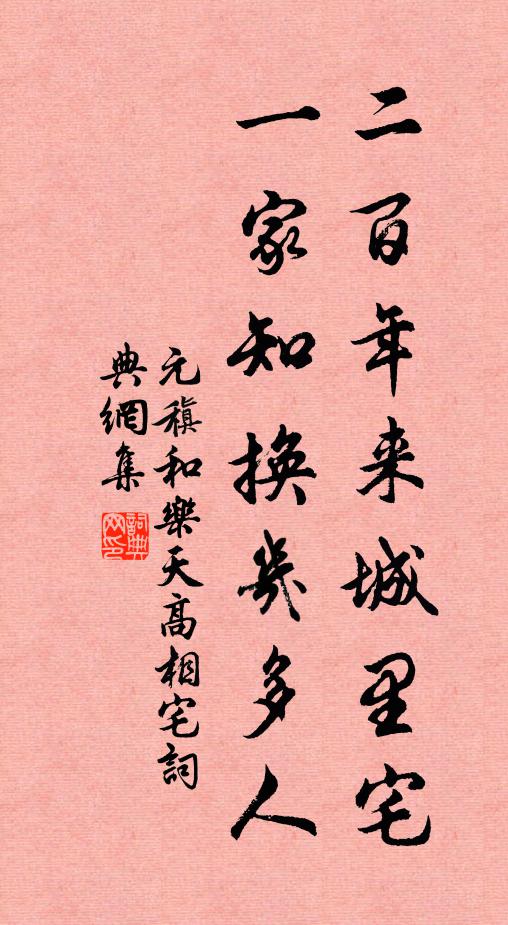 二百年来城里宅
一家知換幾多人
元稹和樂天高相宅詞
典網集
詞典
网印